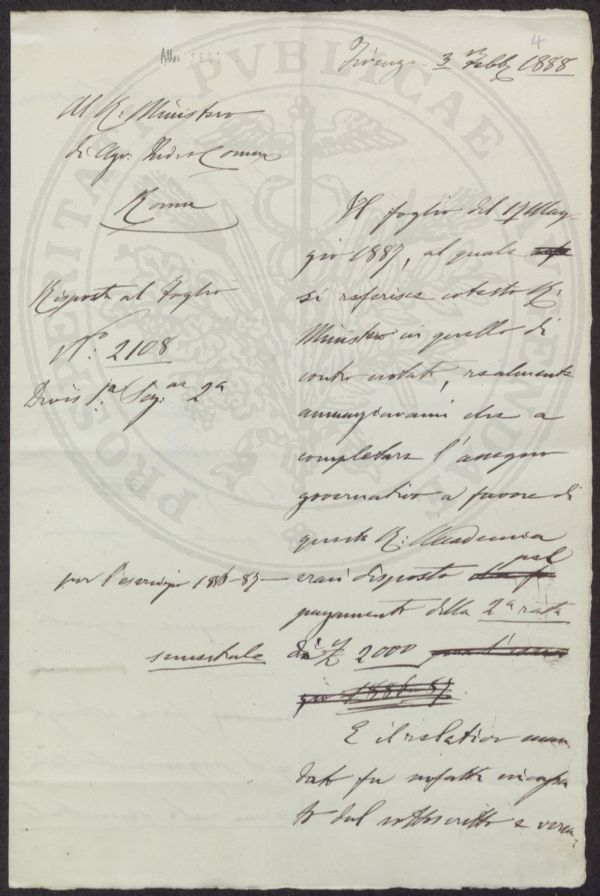 4
Firenze 3 Febb. 1888
Al R. Ministero
di Agr. Indus. Comm.
Roma
Risposta al Foglio
N.° 2108
Divis. 1.a Sez. 2a
Il foglio del 17 Mag-
gio 1887, al quale
si referisce cotesto R.
Ministero in quello di
contro notato, realmente
annunziavami che a
completare l'assegno
governativo a favore di
questa R. Accademia
per l'esercizio 1886-87 erasi disposto pel
pagamento della 2a rata
semestrale di £ 2000
1886-87
E il relativo man-
dato fu infatti incassa-
to dal sottoscritto e versa-
PROSPERITATI PVBLICAE AVGENDAE